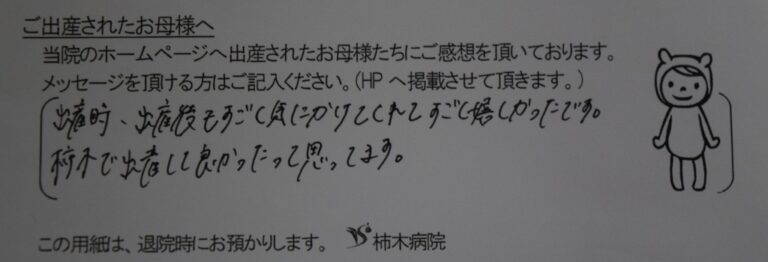 ご出産されたお母様へ
当院のホームページへ出産されたお母様たちにご感想を頂いております。
メッセージを頂ける方はご記入ください。(HPへ掲載させて頂きます。)
出産時、出産後もすごく気にかけてくれてすごく嬉しかったです。
柿木で出産して良かったって思ってます。
この用紙は、退院時にお預かりします。 柿木病院